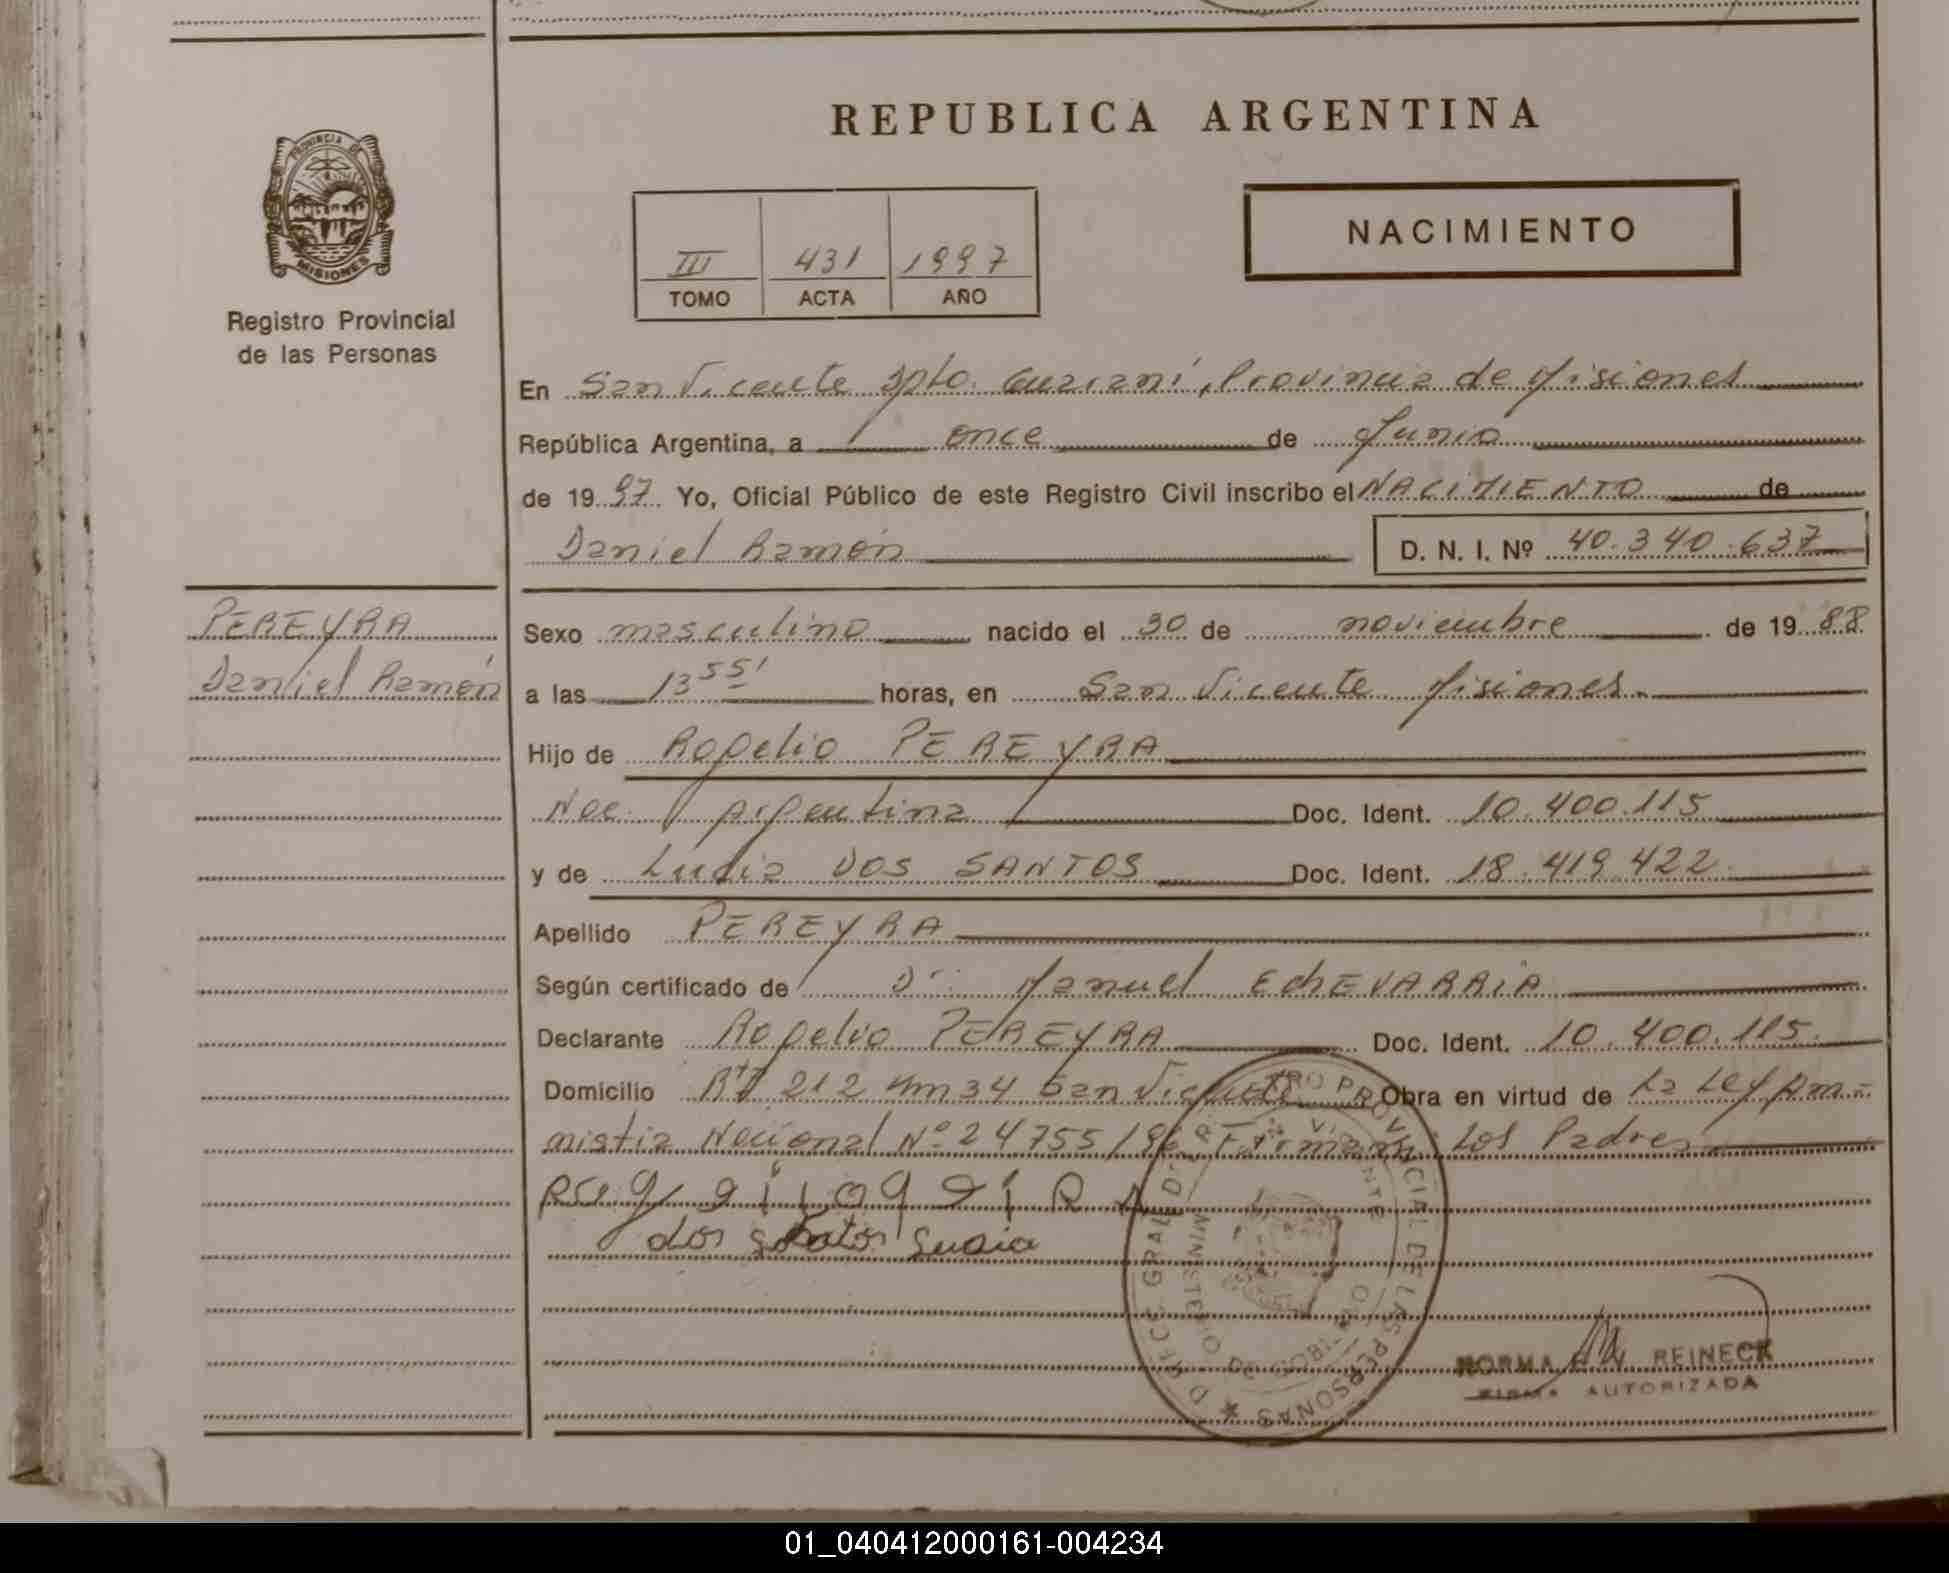 REPUBLICA ARGENTINA
PROVINCIA DE
MISIONES
Registro Provincial
de las Personas
NACIMIENTO
III 431 1997
TOMO ACTA AÑO
En San Vicente Dpto. Guaraní, Provincia de Misiones
República Argentina, a once de Junio
de 1997 Yo, Oficial Público de este Registro Civil inscribo el NACIMIENTO de
Daniel Ramón D. N. I. Nº 40.340.637
PEREYRA
Daniel Ramón
Sexo masculino nacido el 30 de noviembre de 1988
a las 13 55' horas, en San Vicente Misiones.
Hijo de Rogelio PEREYRA
Nac. Argentina Doc. Ident. 10.400.115
y de Ludia DOS SANTOS Doc. Ident. 18.419.422
Apellido PEREYRA
Según certificado de Dr. Manuel EChEVARRIA
Declarante Rogelio PEREYRA Doc. Ident. 10.400.115.
Domicilio Rta 212 Km 34 San Vicente Obra en virtud de La Ley Am-
nistia Nacional Nº 24755/96 Firman: Los Padres
dos santos
REGISTRO PROVINCIAL DE LAS PERSONAS
SAN VICENTE
MINISTERIO DE GOBIERNO
NORMA REINECK
FIRMA AUTORIZADA
01_040412000161-004234